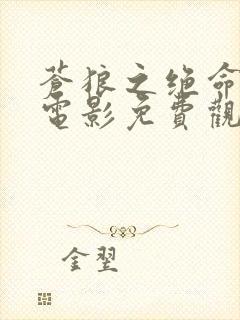 蒼狼之绝命
電影免費觀
金翌